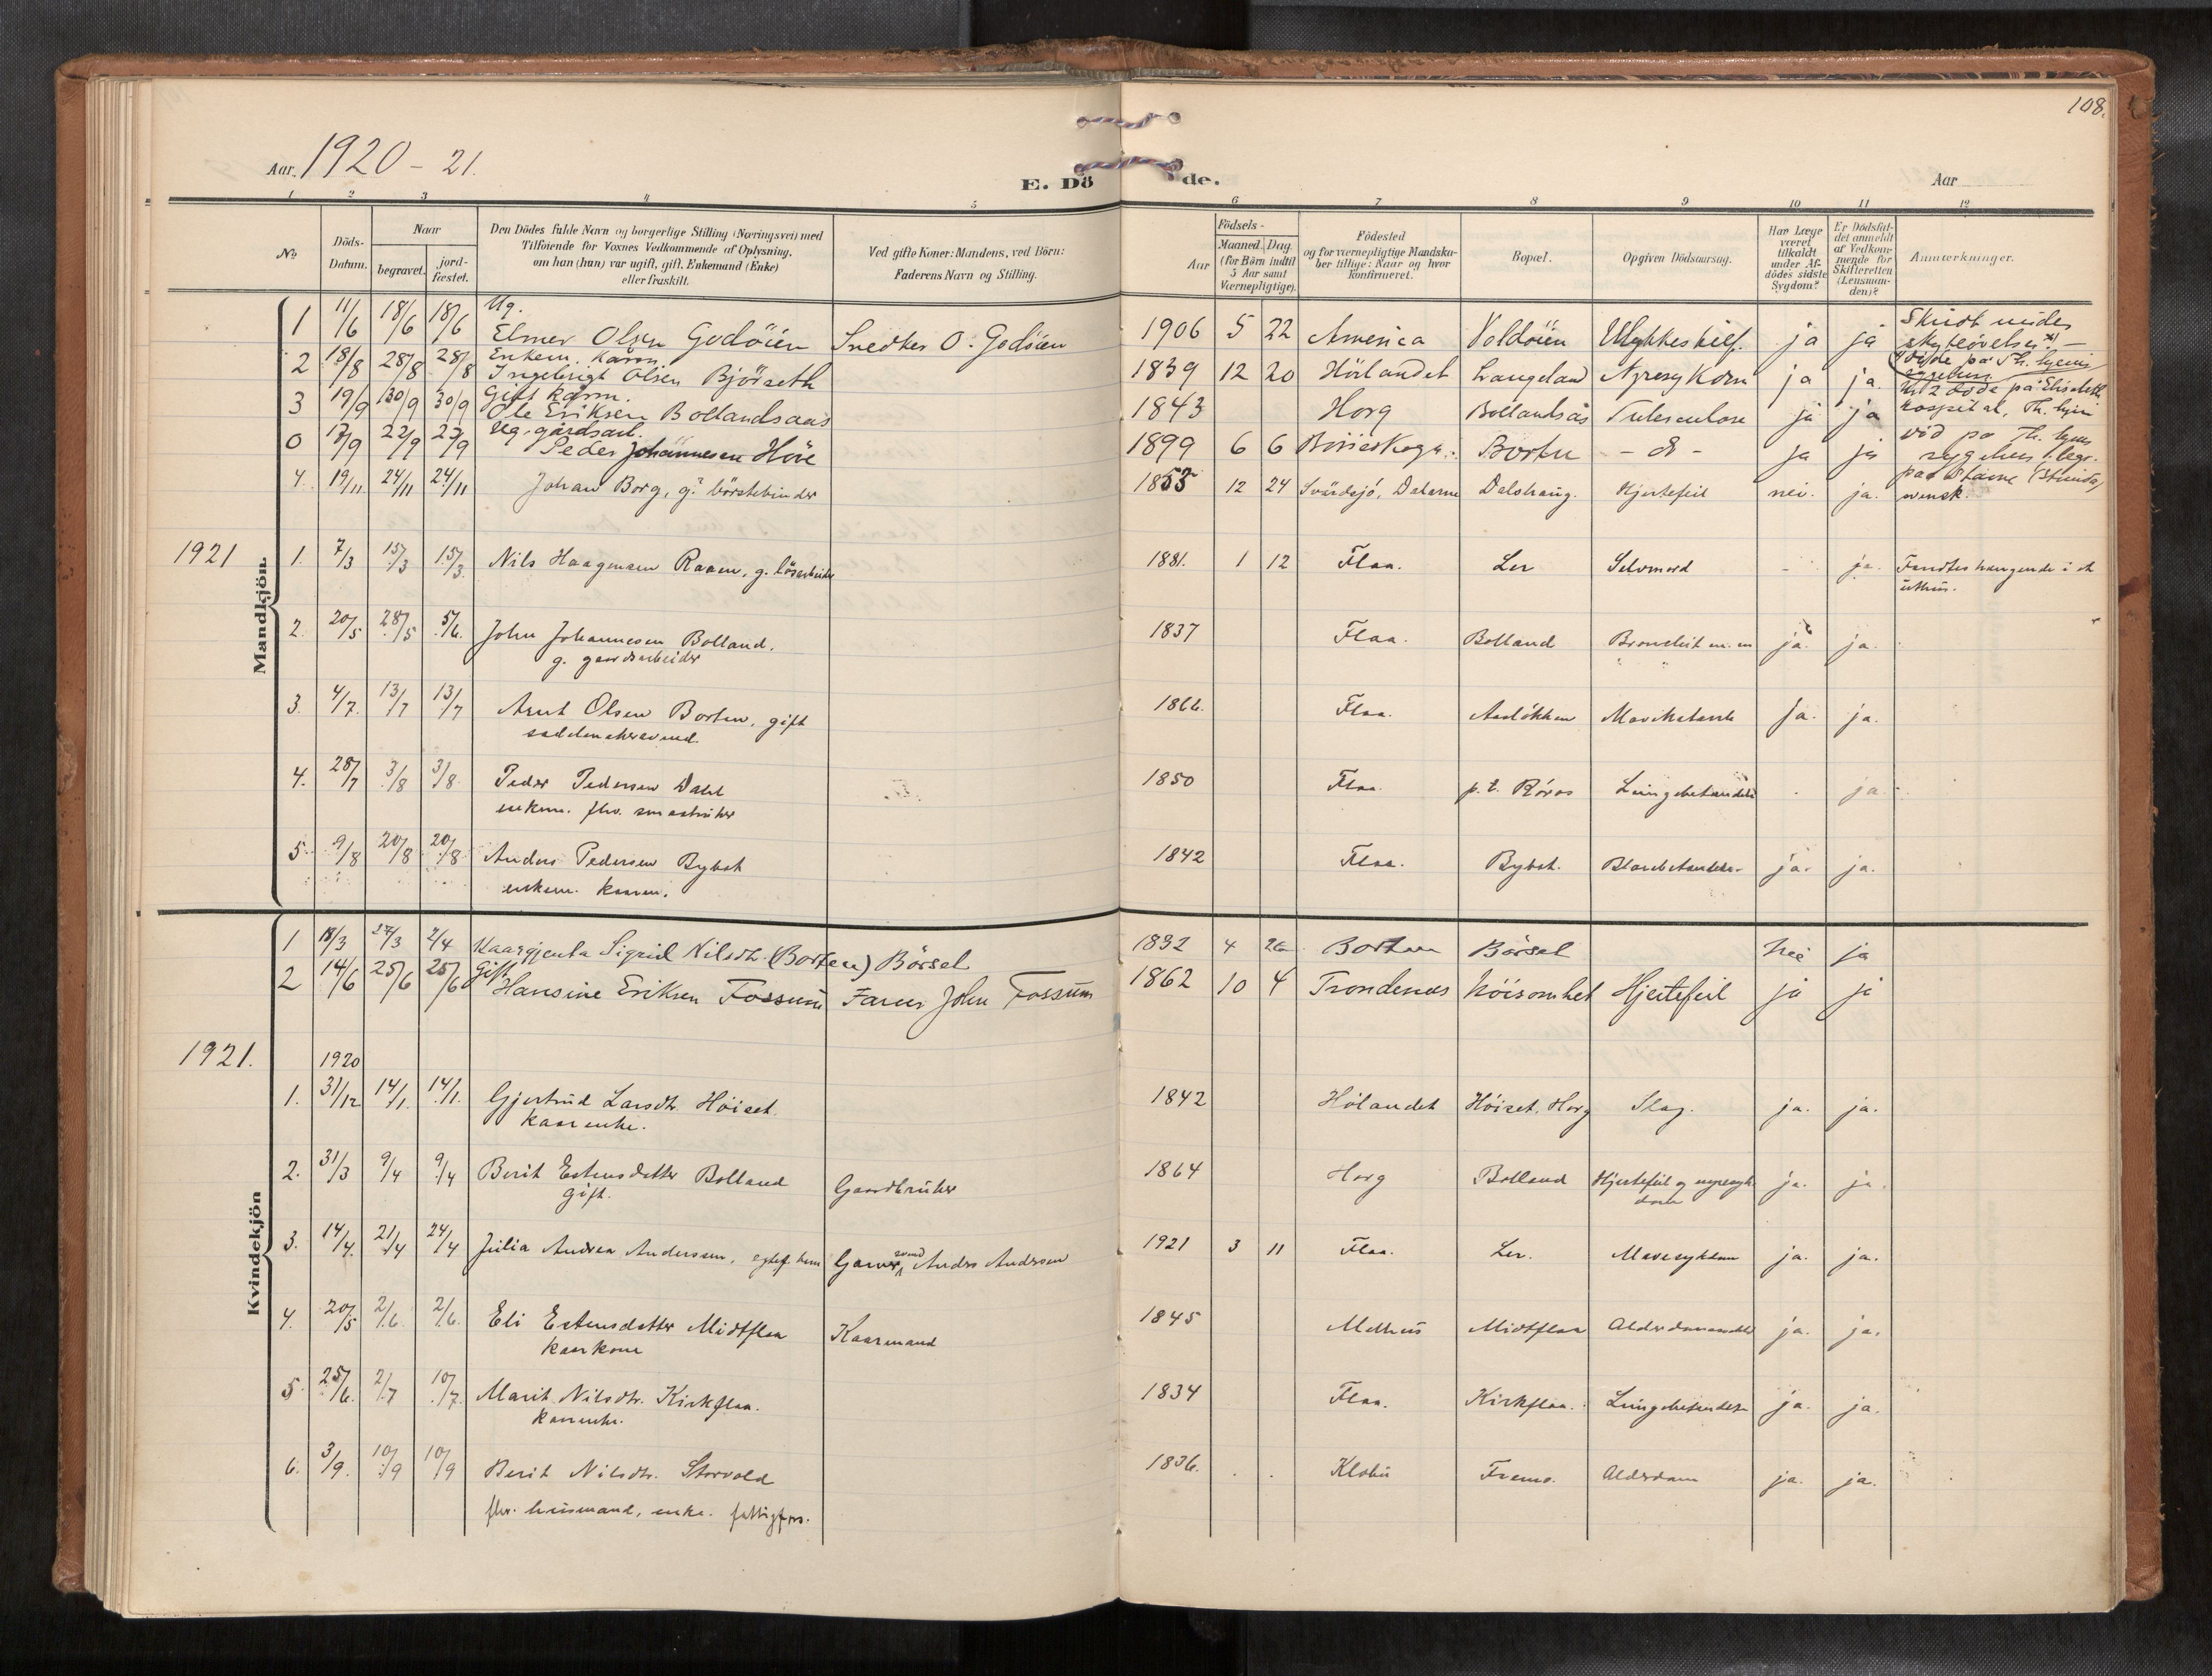 108.
Aar 1920 - 21.
E. Döde.
Aar
1 2 3 4 5 6 7 8 9 10 11 12
No
Döds-Datum.
Naar
begravet.
jord-fæstet.
Den Dödes fulde Navn og borgerlige Stilling (Næringsvei) med
Tilföiende for Voxnes Vedkommende af Oplysning,
om han (hun) var ugift, gift, Enkemand (Enke)
eller fraskilt.
Ved gifte Koner: Mandens, ved Börn:
Faderens Navn og Stilling.
Födsels-
Aar
Maaned. Dag.
(for Börn indtil
5 Aar samt
Værnepligtige).
Födested
og for værnepligtige Mandska-
ber tillige: Naar og hvor
konfirmeret.
Bopæl.
Opgiven Dödsaarsag.
Har Læge
været
tilkaldt
under Af-
dödes sidste
Sygdom?
Er Dödsfal-
det anmeldt
af Vedkom-
mende for
Skifteretten
(Lensman-
den)?
Anmærkninger.
Mandkjön.
1 11/6 18/6 18/6 Ug. Elmer Olsen Godöien Snedker O. Godöien 1906 5 22 America Voldöien Ulykkestilf. ja ja Skudt under skyteövelse
2 18/8 28/8 28/8 Enkem. kaarm. Ingebrigt Olsen Bjørseth 1839 12 20 Hölandet Langeland Nyresykdom ja ja.
3 19/9 30/9 30/9 Gift kaarm. Ole Eriksen Bollandsaas 1843 Horg Bollandsås Tuberculose ja ja No 2 döde på Elisabeth hospital, Th.hjem
0 17/9 22/9 22/9 Ug. gårdsarb. Peder Johannesen Höie 1899 6 6 Börseskogn Borten - d - ja ja död på Th. hjems sygehus. begr.
4. 19/11 24/11 24/11 Johan Borg, g. börstebinder 1855 12 24 Svärdsjö, Dalarne Dalshaug. Hjertefeil nei. ja. svensk.
1921
1. 7/3 15/3 15/3. Nils Haagensen Raaen, g. lösarbeider 1881. 1 12 Flaa. Ler Selvmord - ja. Fandtes hængende i et uthus.
2. 20/5 28/5 5/6. John Johannesen Bolland. g. gaardsarbeider 1837 Flaa. Bolland Bronchit m. m ja. ja.
3. 4/7. 13/7 13/7 Arnt Olsen Borten, gift 1866. Flaa. Aasløkken Mavekatarrh Ja. ja.
4. 28/7 3/8 3/8. Peder Pedersen Dahl enkem. fhv. smaabruker 1850 Flaa. p. t. Röros Lungebetændelse ja.
5. 9/8 20/8 20/8 Anders Pedersen Bybot enkem. kaarm. 1842 Flaa. Bybot. Blærebetændelse ja. ja.
Kvindekjön
1 18/3 27/3 2/4 Kaargjenta Sigrid Nilsdtr. (Borten) Börset 1832 4 26 Borten Börset nei ja
2 14/6 25/6 25/6 Gift Hansine Eriksen Fossum Farver John Fossum 1862 10 4 Trondenes Nöisomhet Hjertefeil ja ja
1921.
1920
1. 31/12 14/1. 14/1. Gjertrud Larsdtr. Höiset. kaarenke. 1842 Hölandet Höiset, Horg Slag. ja. ja.
2. 31/3 9/4 9/4 Berit Estensdatter Bolland gift. Gaardbruker 1864 Horg Bolland Hjertefeil og nyresykdom ja. ja.
3. 14/4. 21/4 24/4 Julia Andrea Anderssen, egtef. barn Garversvend Anders Andersen 1921 3 11 Flaa. Ler. Mavesykdom ja. ja.
4. 20/5 2/6. 2/6. Eli Estensdatter Midtflaa kaarkone Kaarmand 1845 Melhus Midtflaa ja. ja.
5. 25/6. 2/7 10/7. Marit Nilsdtr. Kirkflaa. kaarenke. 1834 Flaa. Kirkflaa. Lungebetændelse ja. ja.
6. 3/9. 10/9 10/9 Berit Nilsdtr. Storvold 1836. Klæbu Fremo. Alderdom ja. ja.
fhv. husmand, enke. fattigfors.